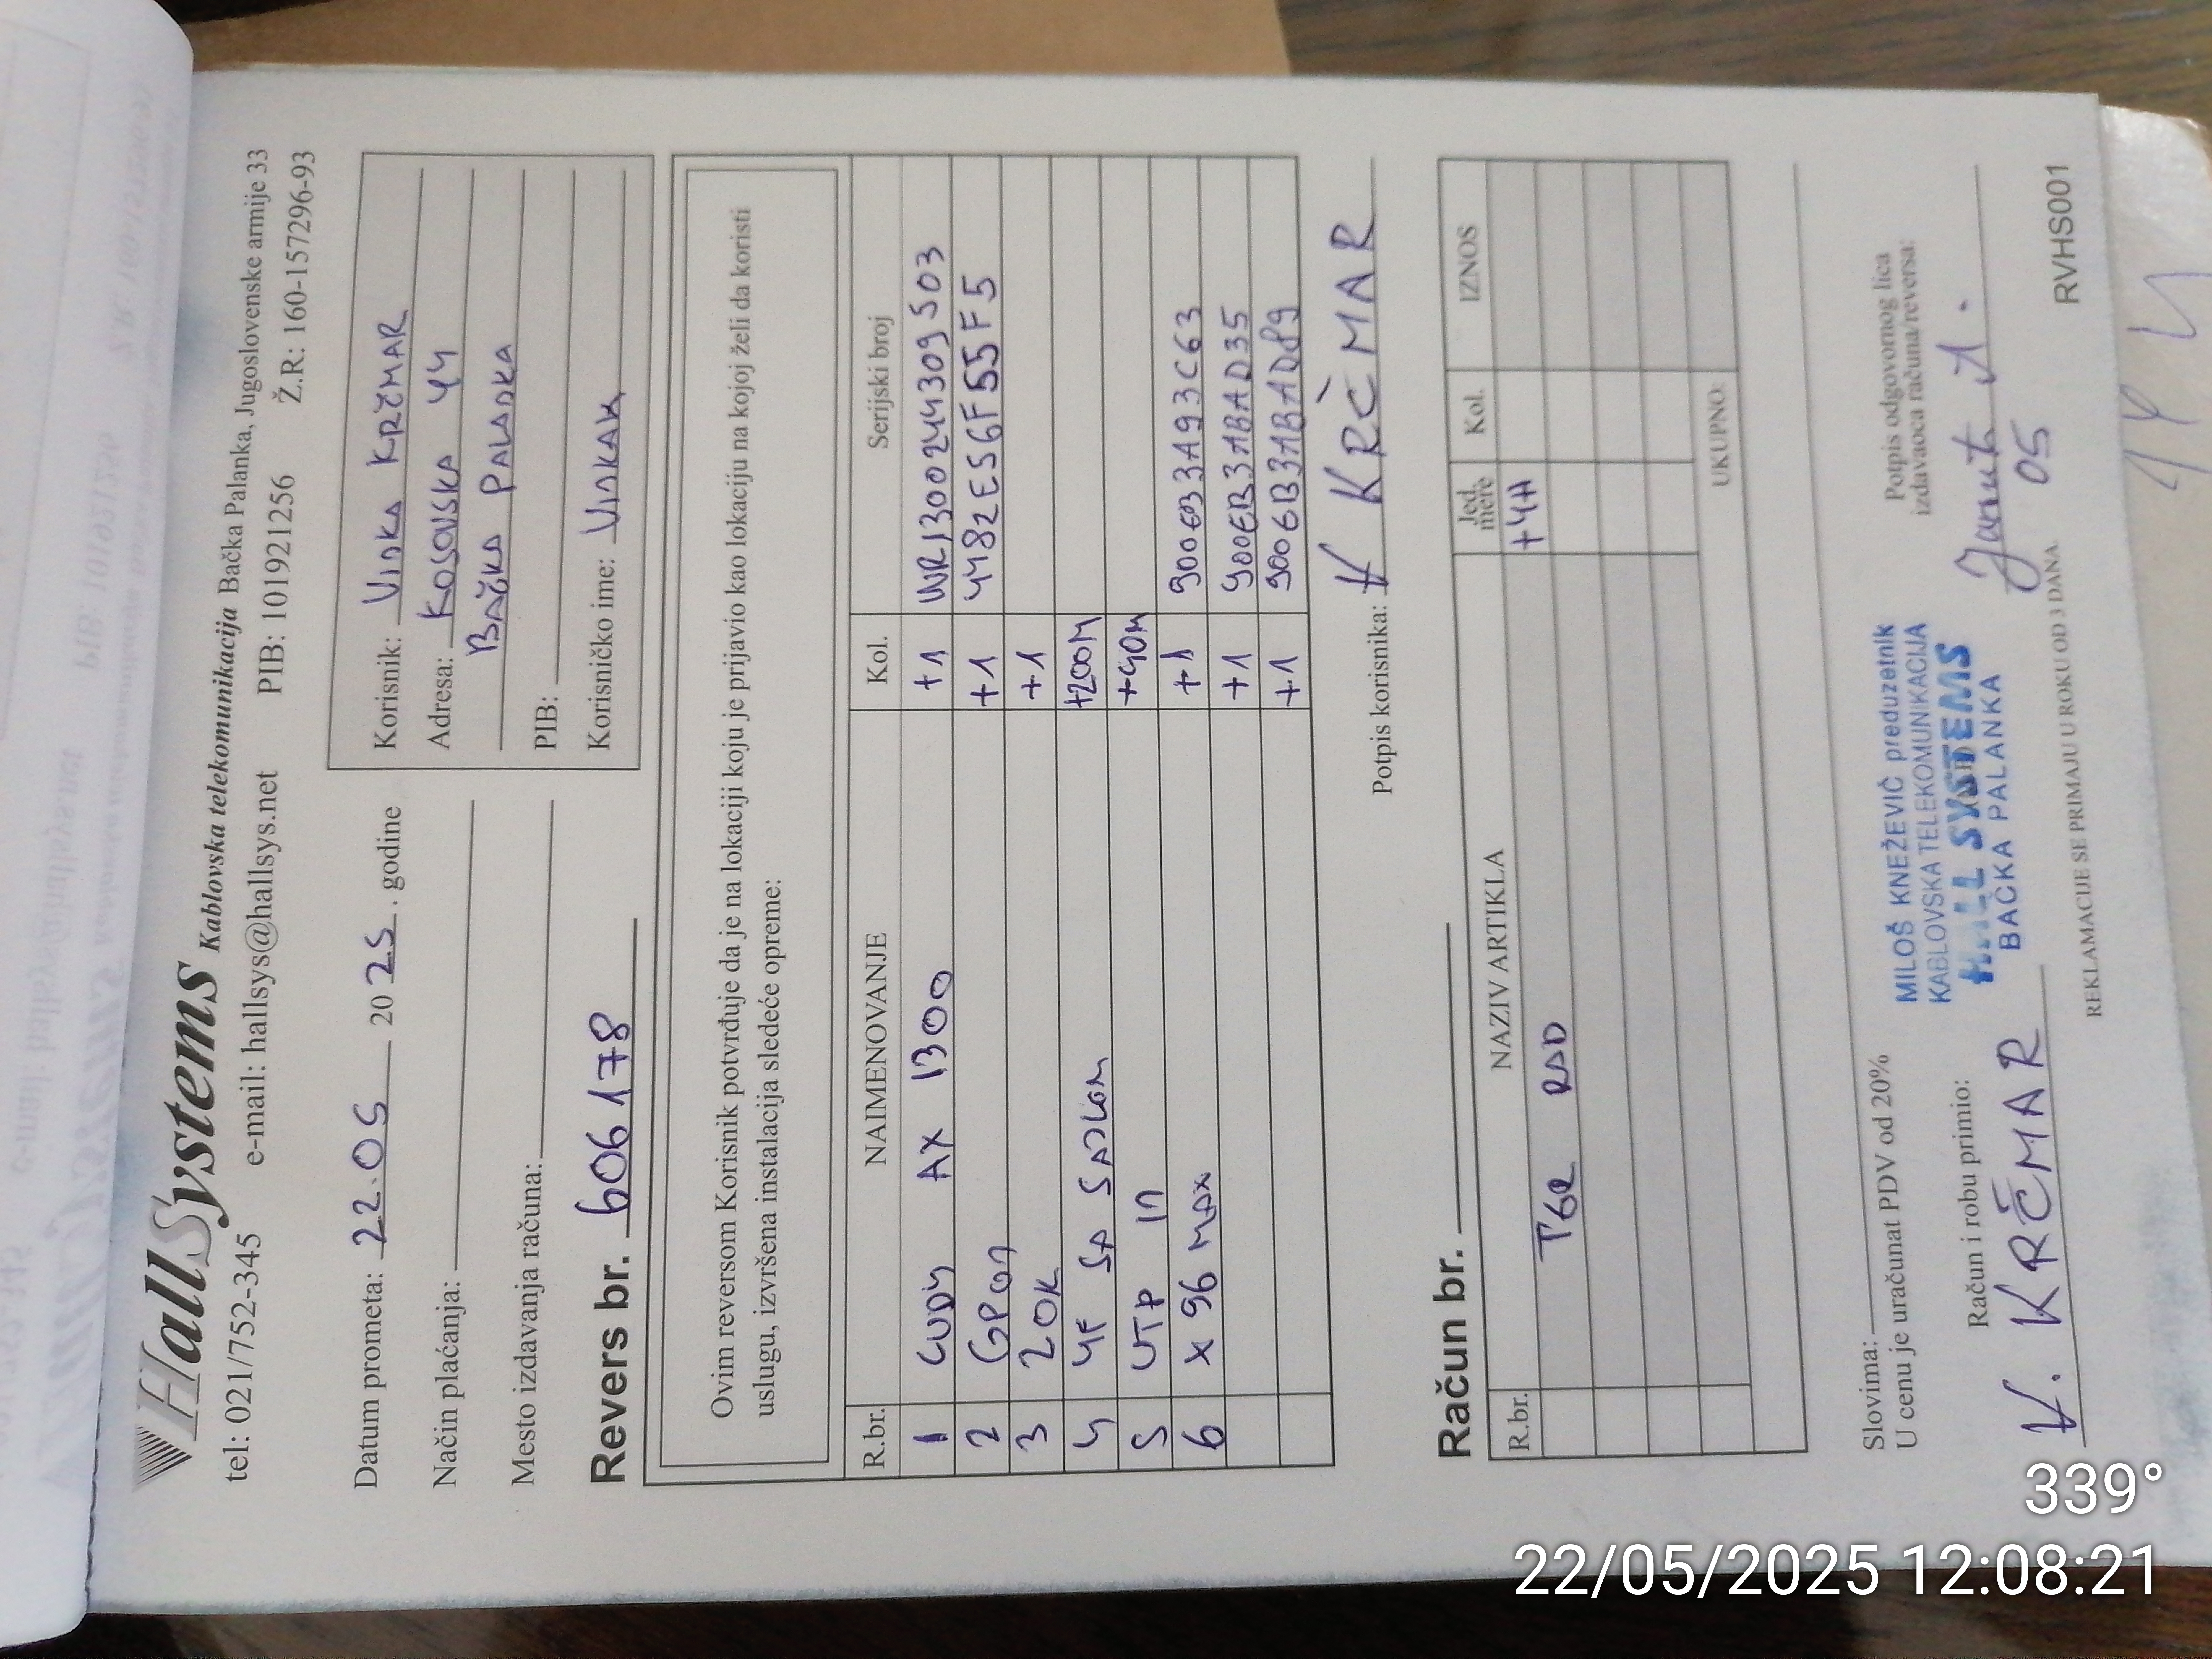 HallSystems Kablovska telekomunikacija Bačka Palanka, Jugoslovenske armije 33
tel: 021/752-345 e-mail: hallsys@hallsys.net PIB: 101921256 Ž.R: 160-157296-93
Datum prometa: 22.05 2025. godine
Način plaćanja:
Mesto izdavanja računa:
Korisnik: VINKA KRČMAR
Adresa: KOSOVSKA 44
BAČKA PALANKA
PIB:
Korisničko ime: VINKAK
Revers br. 606178
Ovim reversom Korisnik potvrđuje da je na lokaciji koju je prijavio kao lokaciju na kojoj želi da koristi
uslugu, izvršena instalacija sledeće opreme:
R.br. NAIMENOVANJE Kol. Serijski broj
1 CUDY AX 1300 +1 WR1300244309503
2 GPON +1 4482E56F55F5
3 ZOK +1
4 4F SA SAJLOM +200M
5 UTP IN +40M
6 X 96 MAX +1 900EB3A93C63
+1 900EB31BAD35
+1 9006B31BAD89
Potpis korisnika: V KRČMAR
Račun br.
R.br. NAZIV ARTIKLA Jed. mere Kol. IZNOS
RAD +4H
UKUPNO:
Slovima:
U cenu je uračunat PDV od 20%
Račun i robu primio:
V. KRČMAR
MILOŠ KNEŽEVIĆ preduzetnik
KABLOVSKA TELEKOMUNIKACIJA
HALL SYSTEMS
BAČKA PALANKA
Potpis odgovornog lica
izdavaoca računa/reversa:
05
REKLAMACIJE SE PRIMAJU U ROKU OD 3 DANA.
RVHS001
339°
22/05/2025 12:08:21